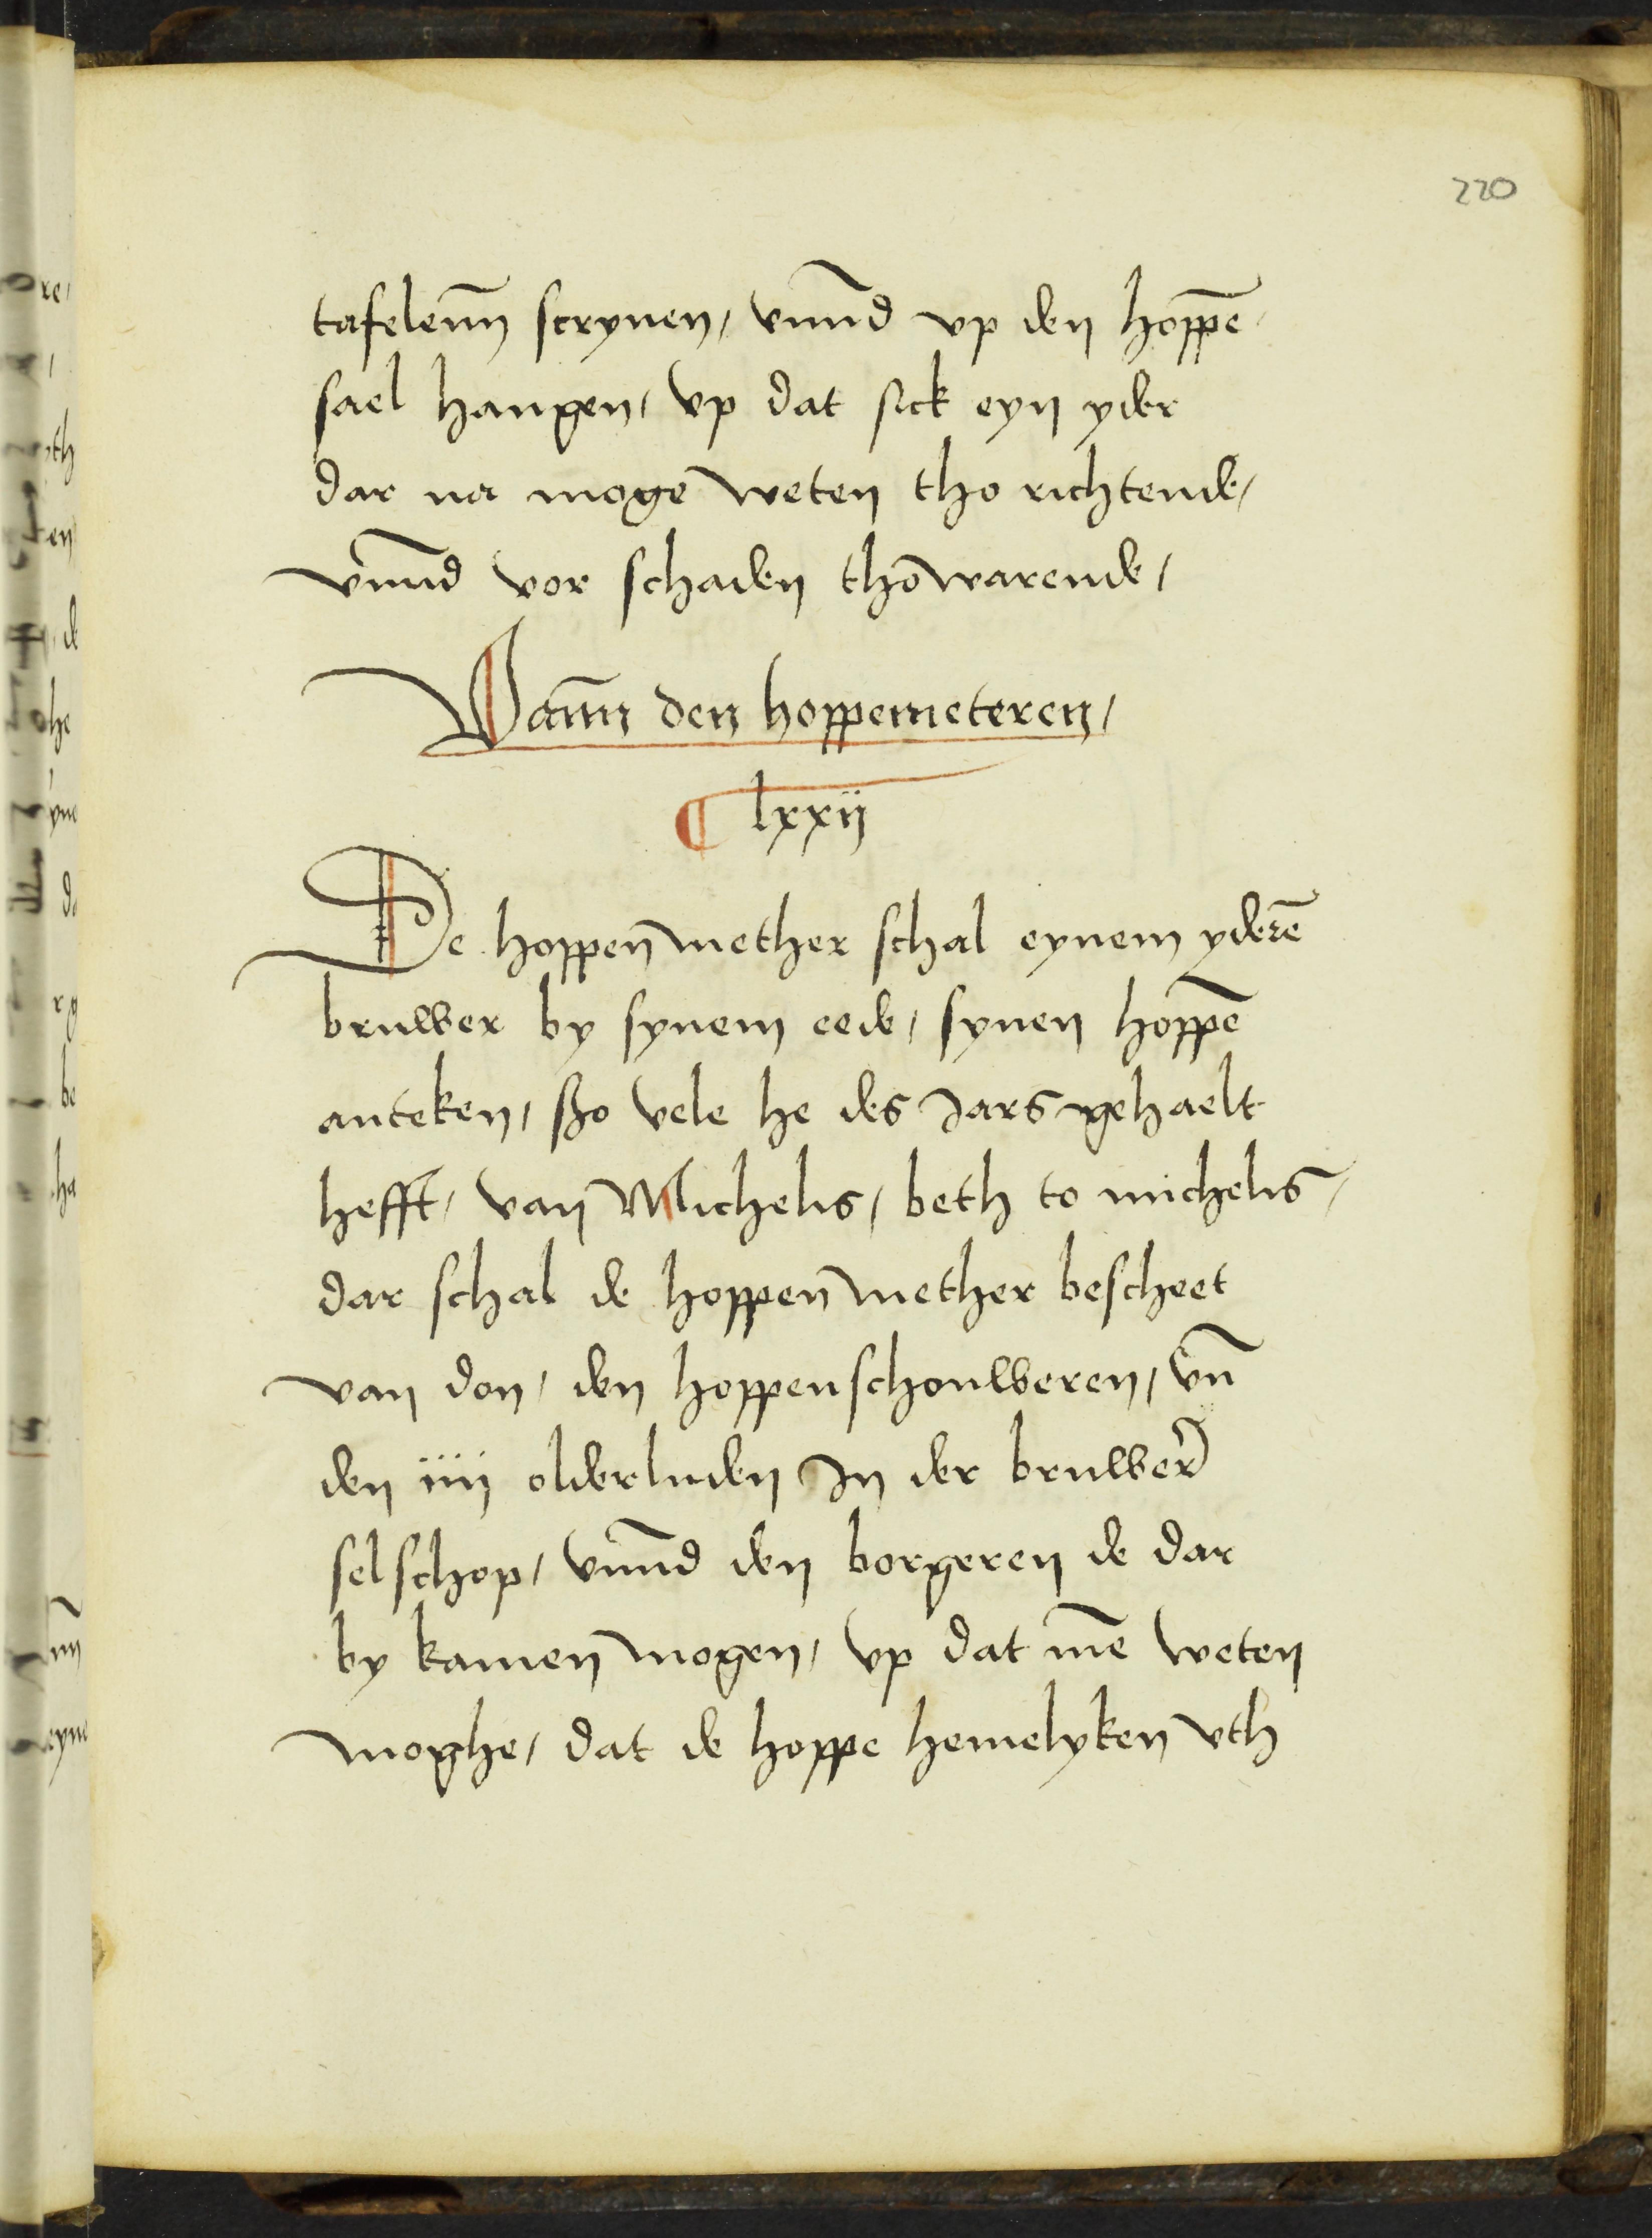 220
tafelenn̄ scryuen, vnnd̄ vp den hoppē
sael hangen, vp dat sick eyn yder
dar na moge weten tho richtende,
vnnd̄ vor schaden tho warende,
Vann̄ den hoppemeteren,
¶ lxxij
De hoppen mether schal eynem yderē
bruwer by synem eede, synen hoppē
anteken, szo vele he des Jars gehaelt
hefft, van Michelis, beth to michelis,
dar schal de hoppen mether bescheet
van don, den hoppenschouweren, vn̄
den iiij olderluden In der bruwer
selschop, vnnd̄ den borgeren de dar
by kamen mogen, vp dat mē weten
moghe, dat de hoppe hemelyken vth